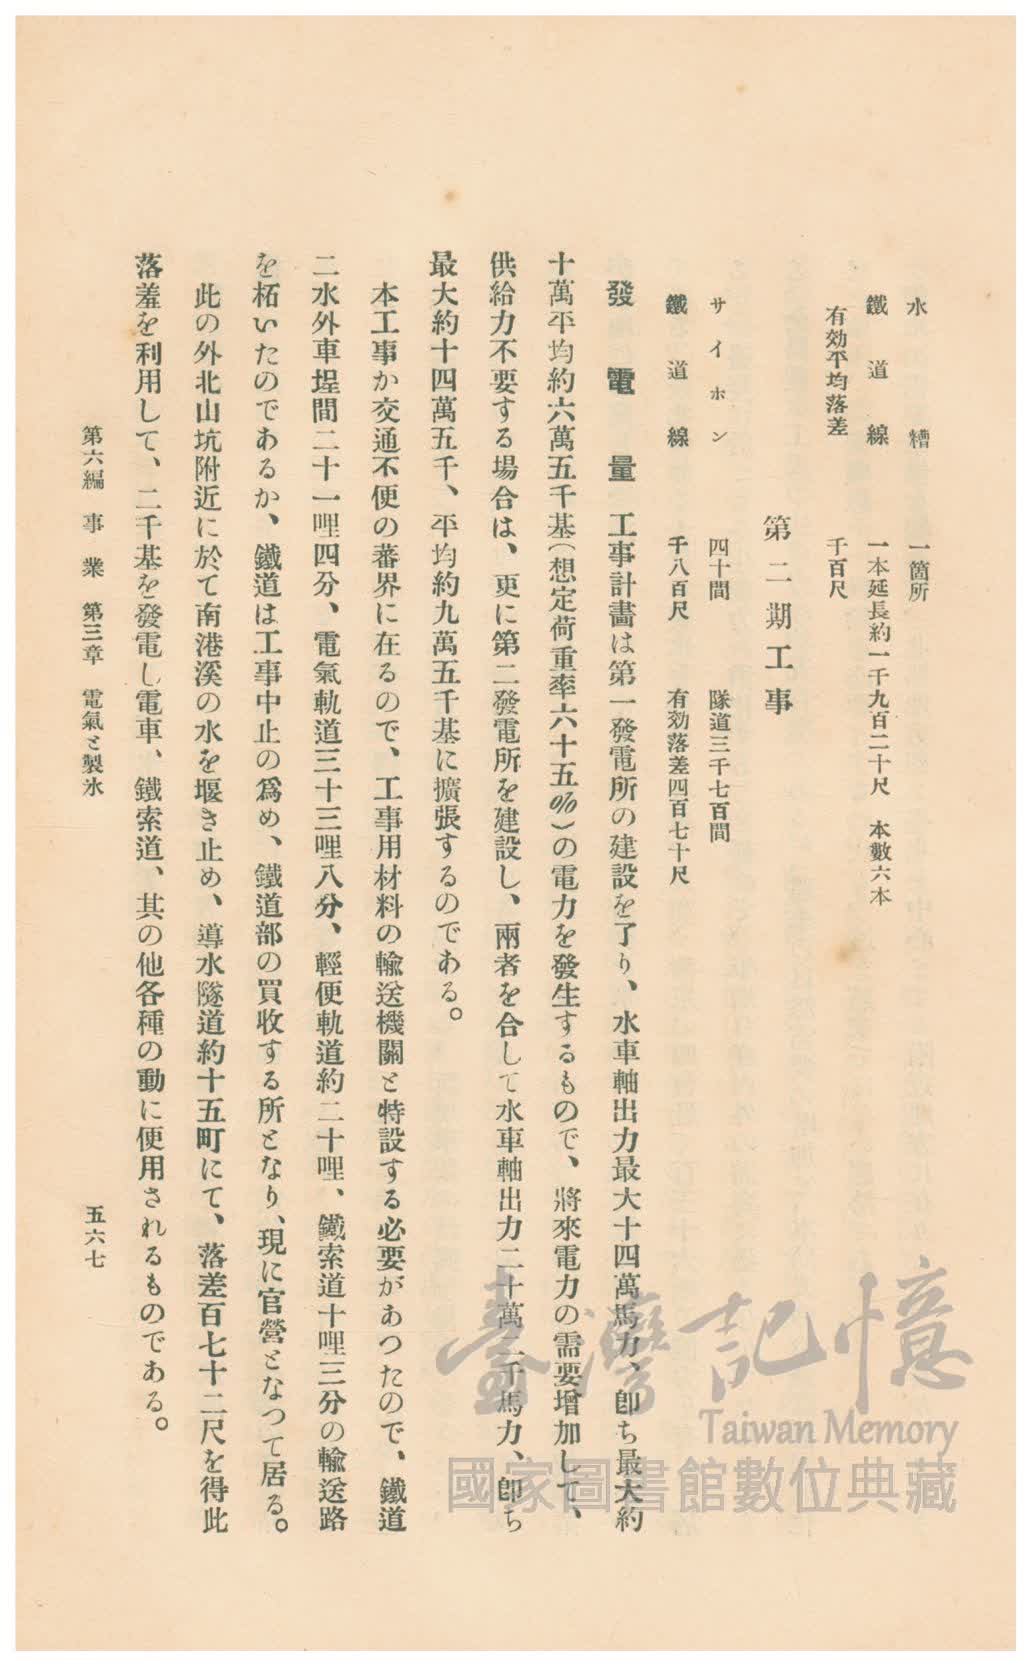 水槽　一箇所
鐵道線　一本延長約一千九百二十尺　本數六本
有効平均落差　千百尺
第二期工事
サイホン　四十間　隊道三千七百間
鐵道線　千八百尺　有効落差四百七十尺
發電量　工事計畫は第一發電所の建設を了り、水車軸出力最大十四萬馬力、卽ち最大約
十萬平均約六萬五千基(想定荷重率六十五%)の電力を發生するもので、將來電力の需要增加して、
供給力不要する場合は、更に第二發電所を建設し、兩者を合して水車軸出力二十萬二千馬力、卽ち
最大約十四萬五千、平均約九萬五千基に擴張するのである。
本工事か交通不便の蕃界に在るので、工事用材料の輸送機關と特設する必要があつたので、鐵道
二水外車埕間二十一哩四分、電氣軌道三十三哩八分、輕便軌道約二十哩、鐵索道十哩三分の輸送路
を柘いたのであるか、鐵道は工事中止の爲め、鐵道部の買收する所となり、現に官營となつて居る。
此の外北山坑附近に於て南港溪の水を堰き止め、導水隧道約十五町にて、落差百七十二尺を得此
落差を利用して、二千基を發電し電車、鐵索道、其の他各種の動に便用されるものである。
第六編　事業　第三章　電氣と製氷
五六七
臺灣記憶
Taiwan Memory
國家圖書館數位典藏